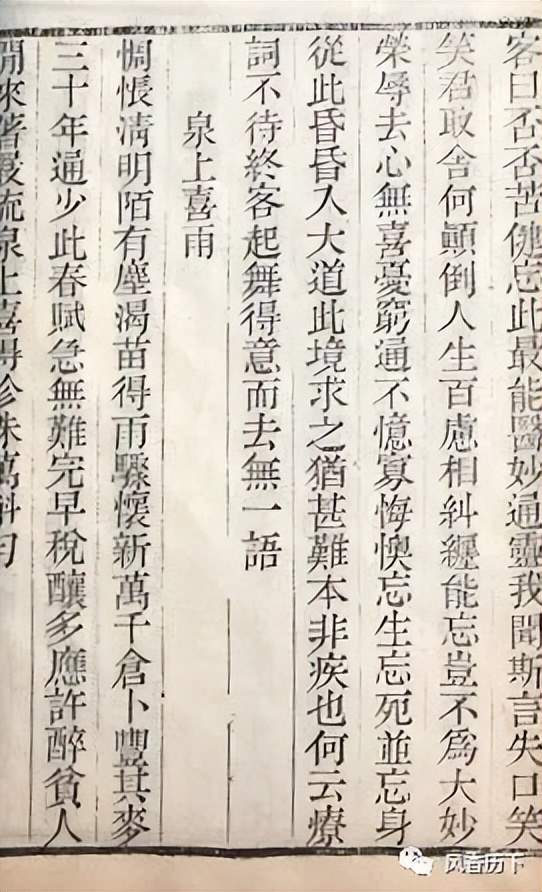 客曰否否苦健忘此最能醫妙通靈我聞斯言失口笑
笑君取舍何顚倒人生百慮相糾纏能忘豈不爲大妙
榮辱去心無喜憂窮通不憶寡悔懊忘生忘死並忘身
從此昏昏入大道此境求之猶甚難本非疾也何云療
詞不待終客起舞得意而去無一語
泉上喜雨
惆悵淸明陌有塵渴苗得雨驟懷新萬千倉卜豐其麥
三十年逋少此春賦急無難完早稅釀多應許醉貧人
閒來著屐流泉上喜得珍珠萬斛勻
风香历下